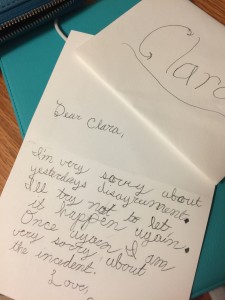 Clara
Dear Clara,
I'm very sorry about
yesterdays disagrument.
I'll try not to let
it happen again.
Once again I am
very sorry about
the incident.
Love,